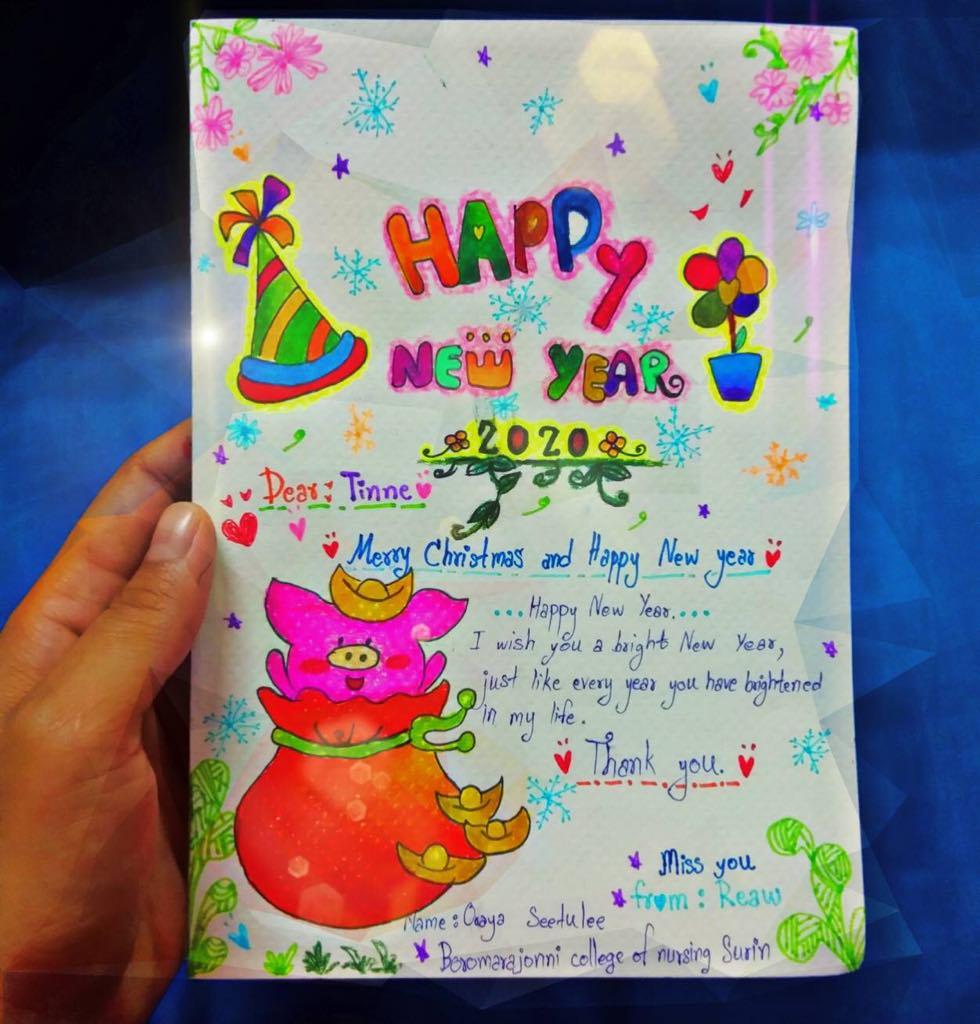 HAPPY
NEW YEAR
2020
Dear: Tinne
Merry Christmas and Happy New year
...Happy New Year....
I wish you a bright New Year,
just like every year you have brightened
in my life.
Thank you.
Miss you
from: Reaw
Name: Seetulee
Boromarajonni college of nursing Surin